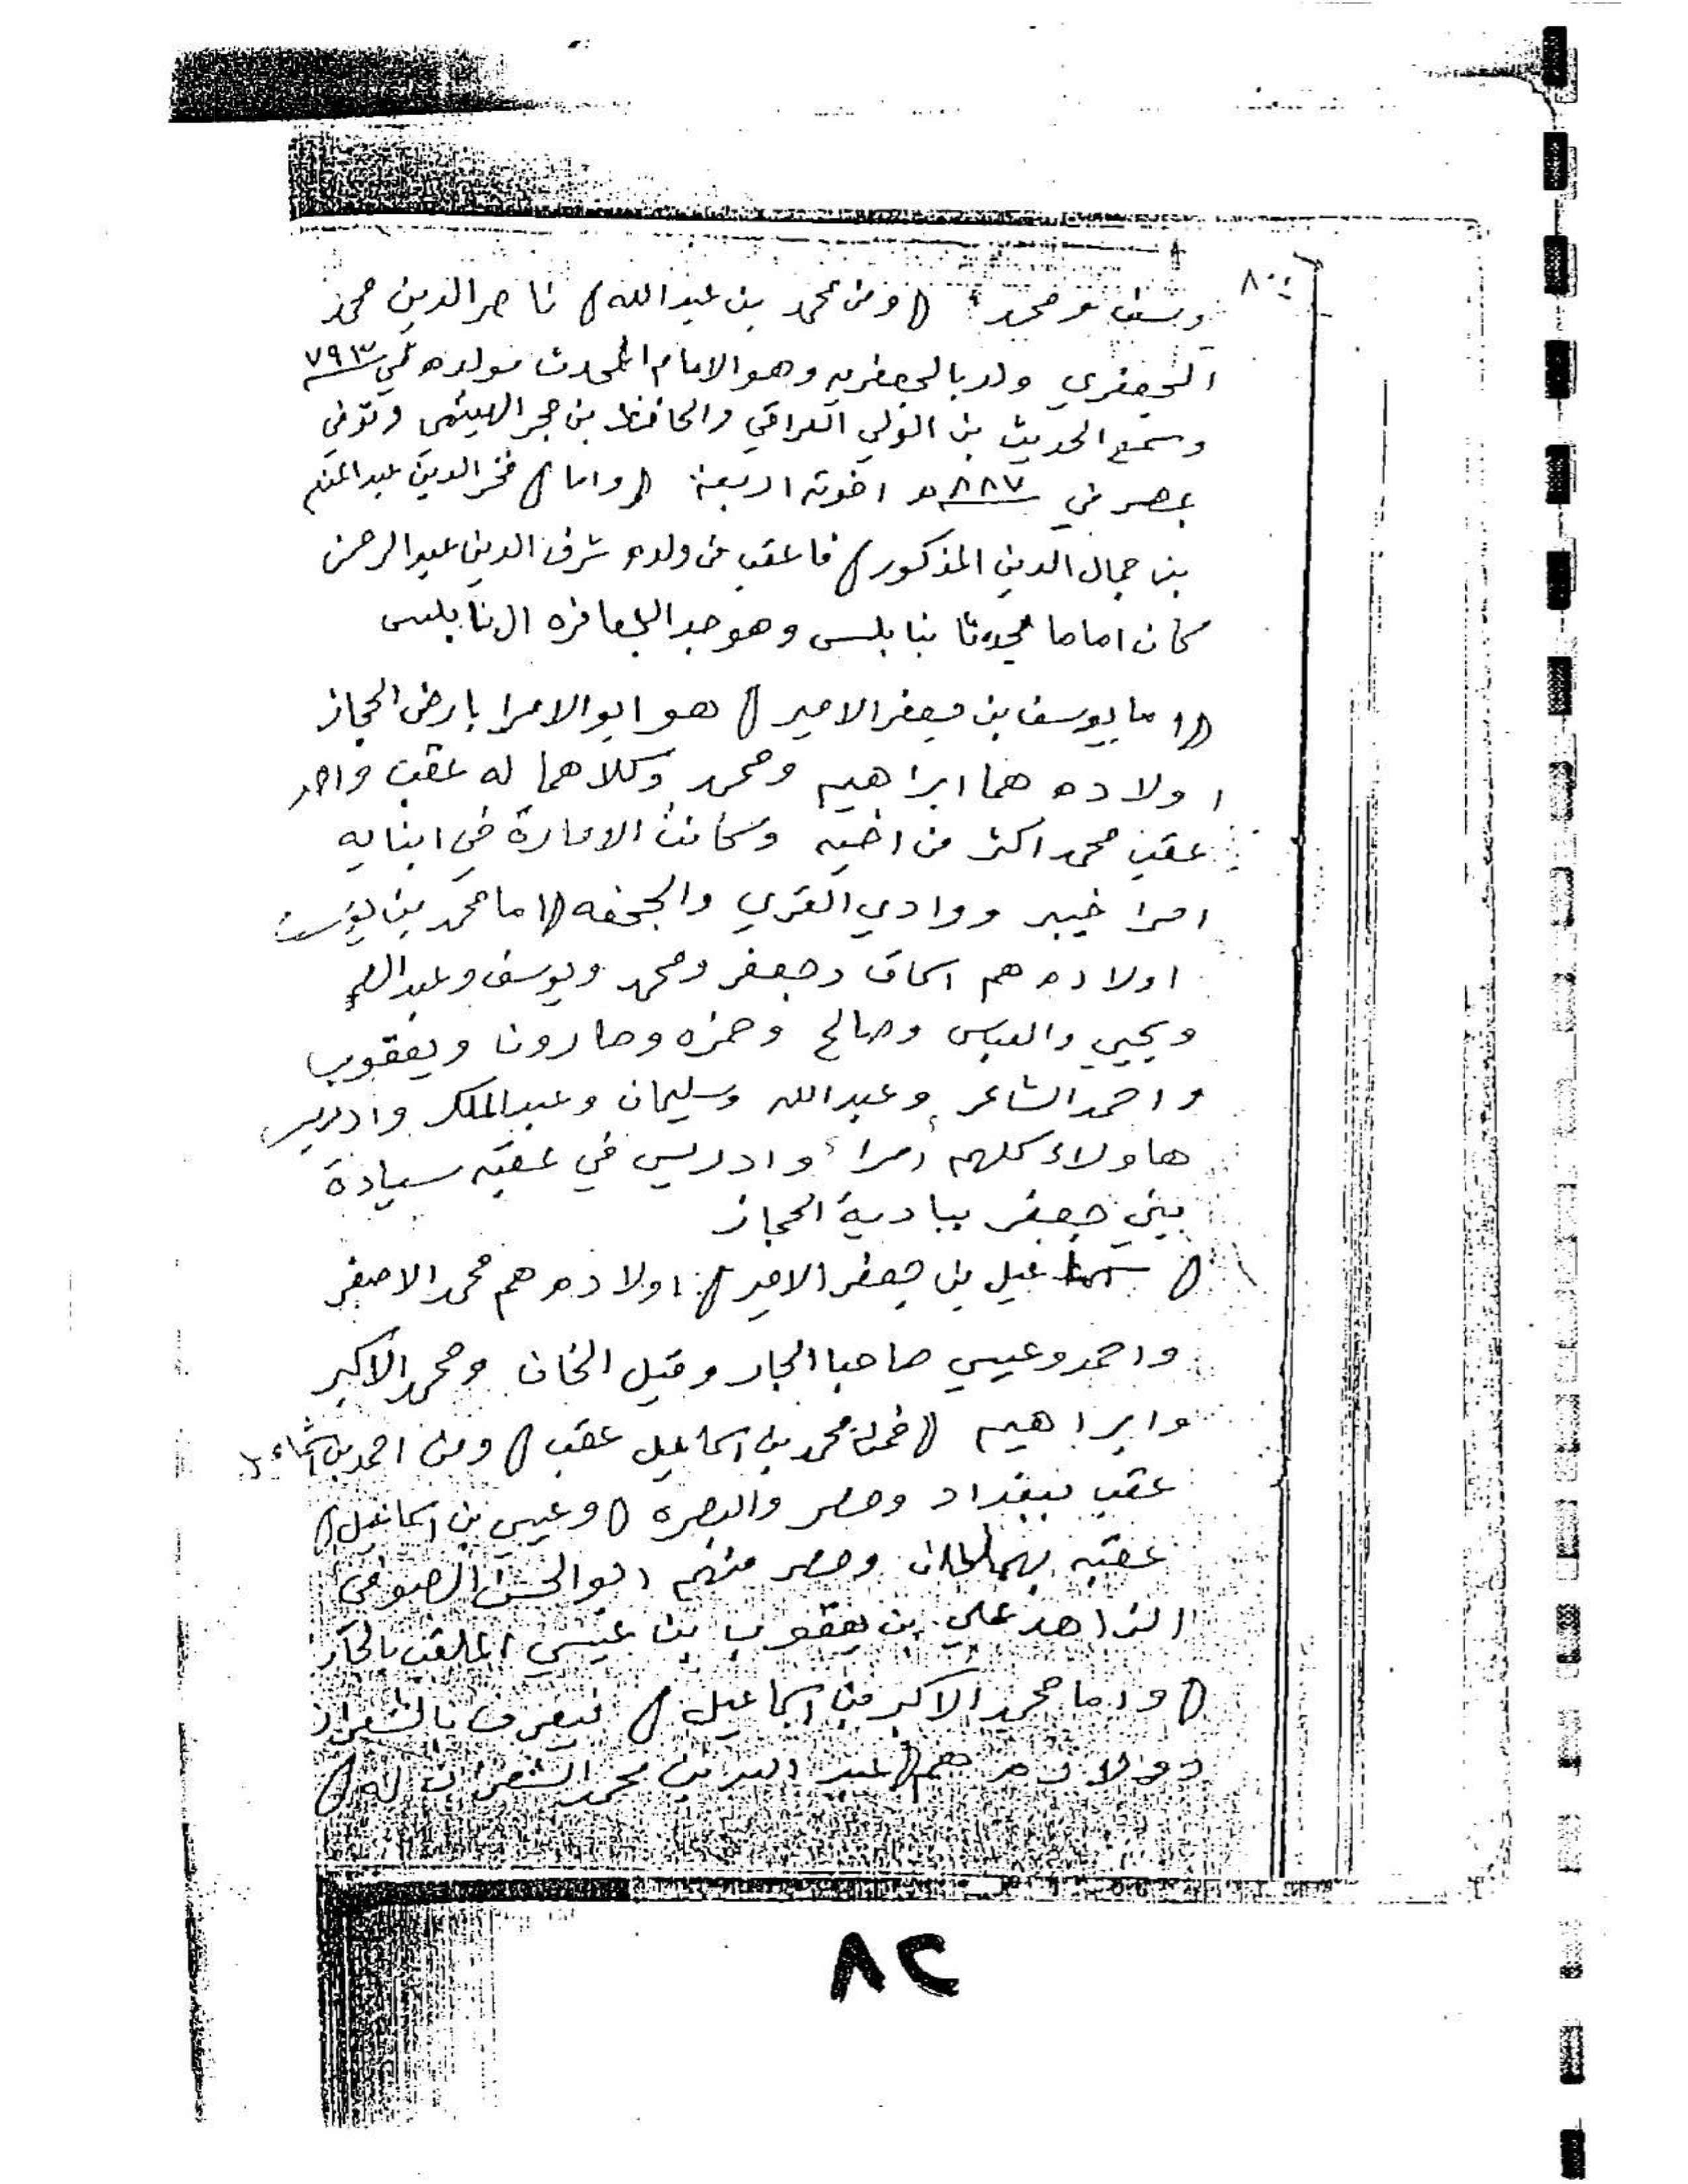 ويوسف ومحمد (ومن محمد بن عبدالله) ناصر الدين محمد
الجعفري ولد بالجعفريه وهو الامام المحدث مولده في ٧٩٣
وسمع الحديث من الولي العراقي والحافظ بن حجر الهيثمي وتوفي
بمصر في ٨٨٧ و اخوته اربعة (واما) فخر الدين عبد المنعم
بن جمال الدين المذكور) فاعقب من ولده شرف الدين عبد الرحمن
كان اماما محدثا بنابلس وهو جد الجعافره النابلسى
(اما يوسف بن جعفر الامير) هو ابو الامرا بارض الحجاز
اولاده هما ابراهيم ومحمد وكلاهما له عقب واحد
عقب محمد اكثر من اخيه وكانت الامارة في ابنايه
امرا خيبر ووادي القري والجحفه (اما محمد بن يوسف
اولاده هم اسحاق وجعفر ومحمد ويوسف وعبدالله
ويحيي والعباس وصالح وحمزه وهارون ويعقوب
واحمد الشاعر وعبدالله وسليمان وعبدالملك وادريس
هاولاء كلهم امرا وادريس في عقبه سيادة
بني جعفر ببادية الحجاز
(اسماعيل بن جعفر الامير) اولاده هم محمد الاصغر
واحمد وعيسي صاحبا الجار وقيل الخان ومحمد الاكبر
وابراهيم (فمن محمد بن اسماعيل عقب) ومن احمد بن اسماعيل
عقب ببغداد ومصر والبصره (وعيسي بن اسماعيل)
عقبه ومصر منهم ابو الحسن الصوفي
الزاهد علي بن يعقوب بن عيسي الملقب بالجار
(واما محمد الاكبر بن اسماعيل) فيعرف بالشعراني
واولاده هم (عبد الله بن محمد الشعراني له)
٨٢